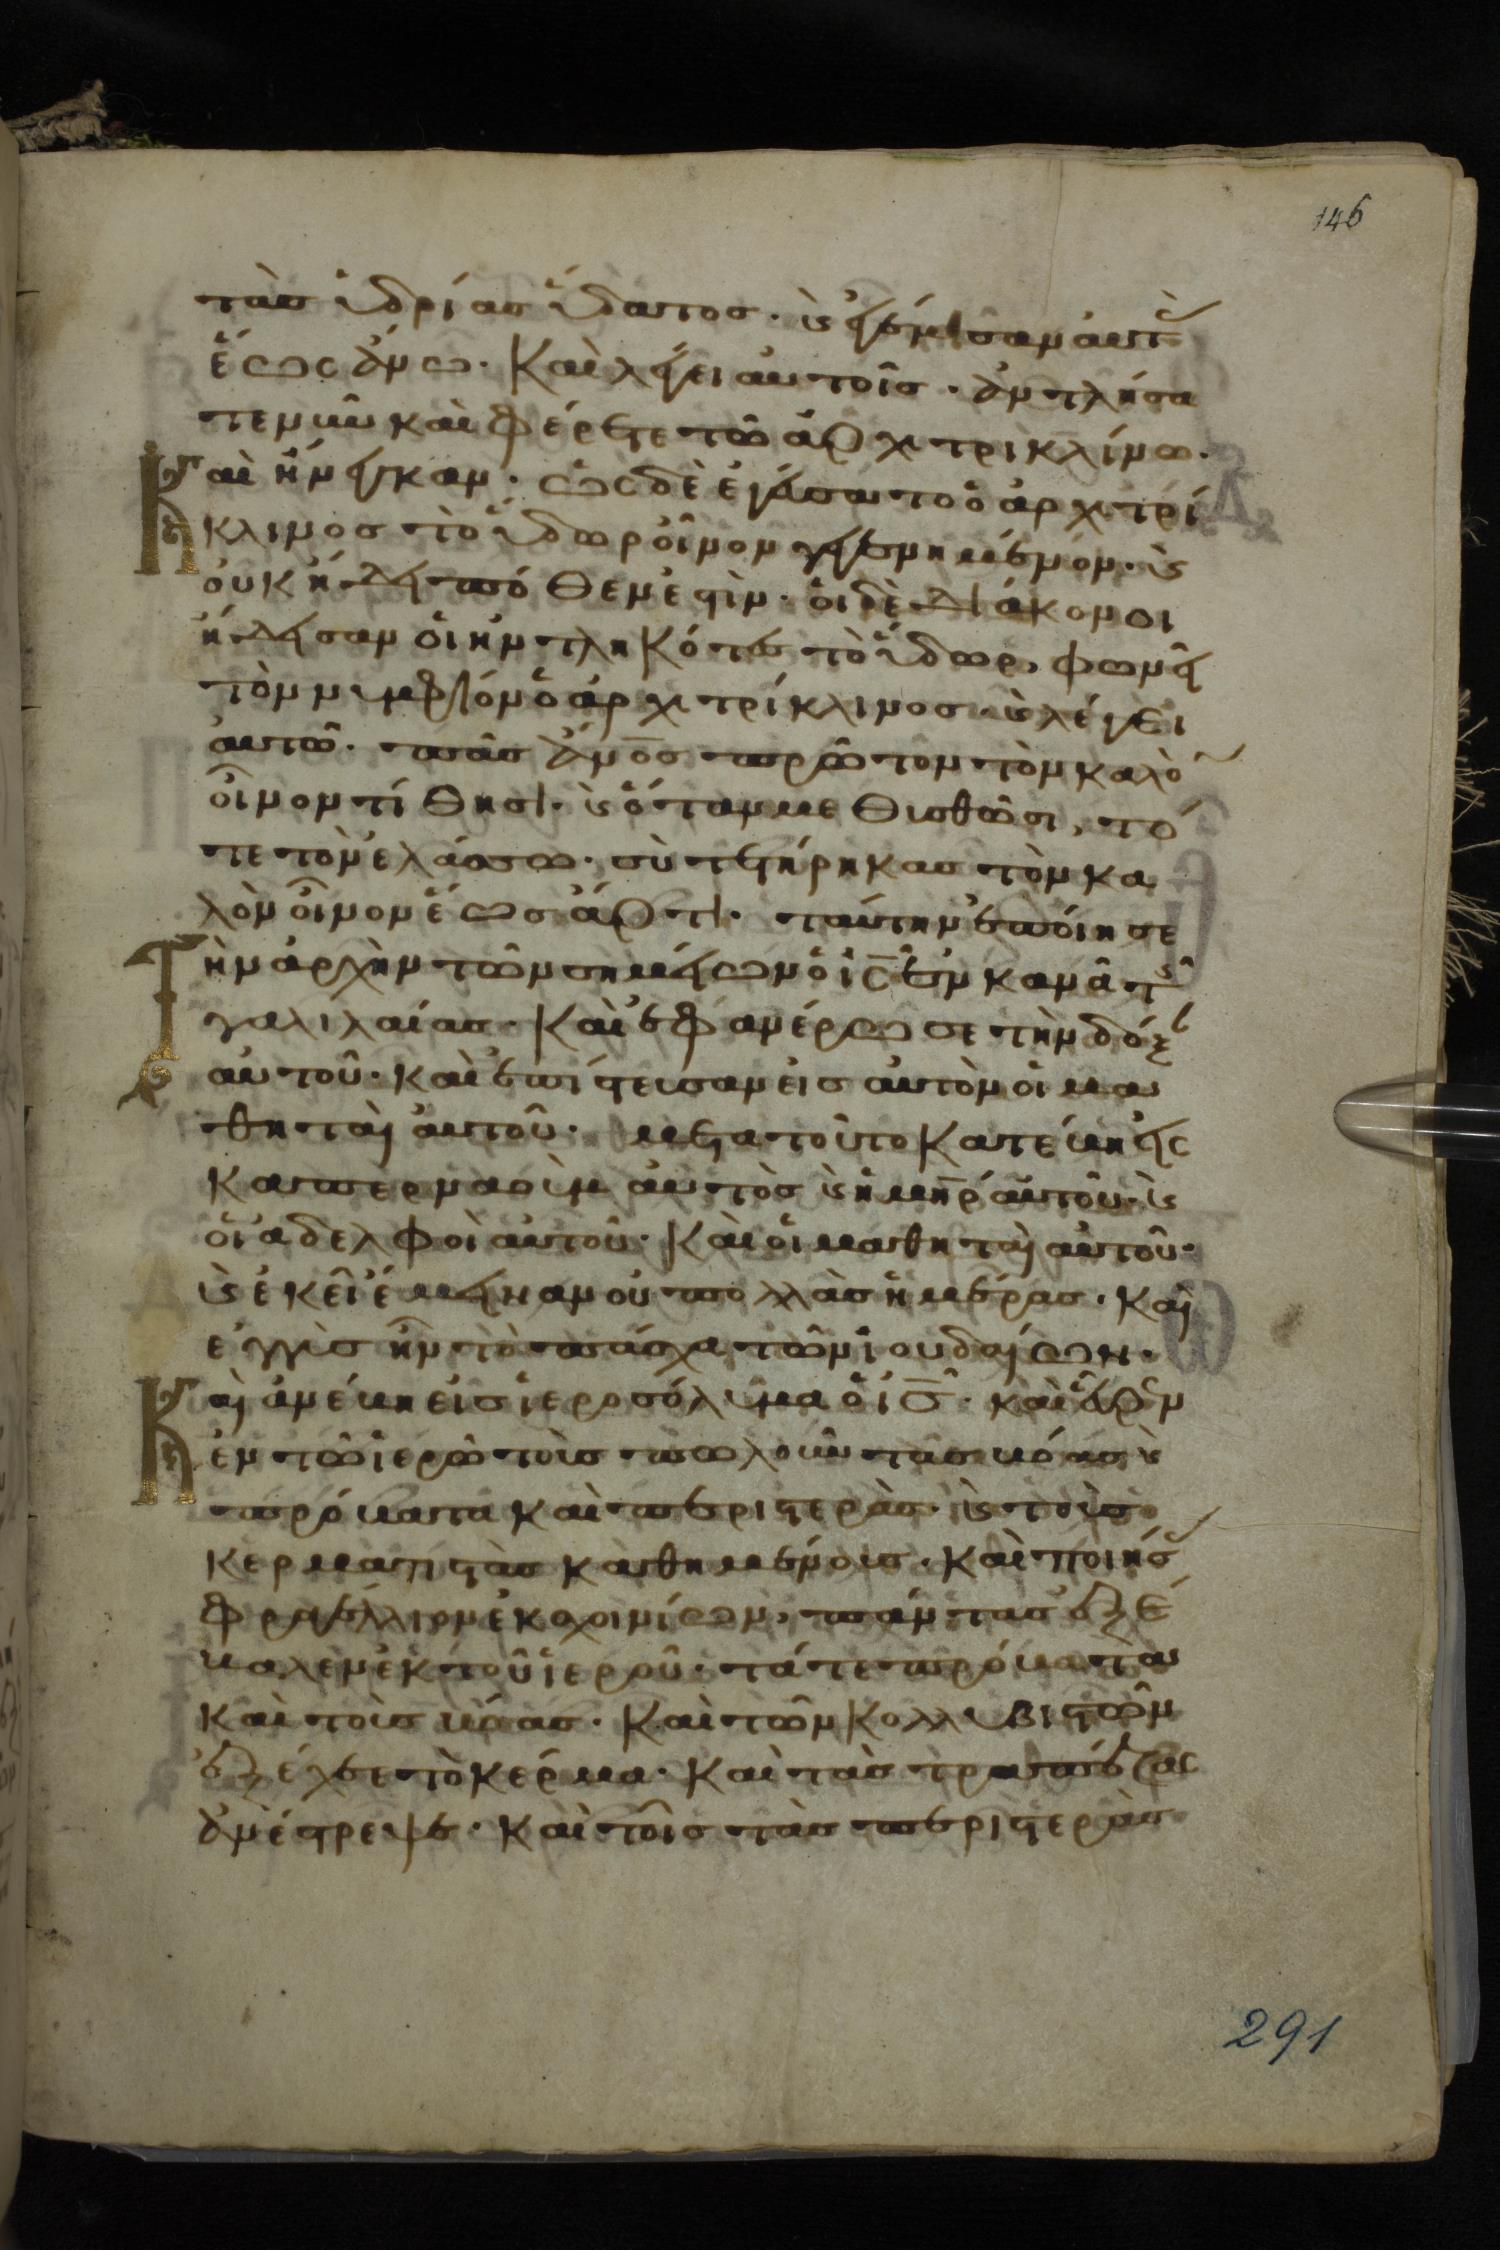 146
τὰς ὑδρίας ὕδατος· ϗ ἐγέμισαν αὐτ(ὰς)
ἕως ἄνω· Καὶ λέγει αὐτοῖς· ἀντλήσα
τε νῦν καὶ φέρετε τῶ ἀρχιτρικλίνω·
Καὶ ἤνεγκαν· ὡς δὲ ἐγεύσατο ὁ ἀρχιτρί
κλινος τὸ ὕδωρ οἶνον γεγενημένον· ϗ
οὐκ ἤδει πόθεν ἐστὶν· οἱ δὲ διάκονοι
ἤδεισαν οἱ ἠντληκότες τὸ ὕδωρ, φωνεῖ
τὸν νυμφίον ὁ ἀρχιτρίκλινος· ϗ λέγει
αὐτῶ· πᾶς ἄνο̅ς πρῶτον τὸν καλὸ(ν)
οἶνον τίθησι· ϗ ὅταν μεθυσθῶσι, τό
τε τὸν ἐλάσσω· σὺ τετήρηκας τὸν κα
λὸν οἶνον ἕως ἄρτι· ταύτην ἐποίησε
Τὴν ἀρχὴν τῶν σημείων ὁ ι̅ς̅ ἐν κανᾶ τῆς
γαλιλαίας· Καὶ ἐφανέρωσε τὴν δόξ(αν)
αὐτοῦ· καὶ ἐπίστευσαν εἰς αὐτὸν οἱ μα
θηταὶ αὐτοῦ· μετα τοῦτο κατέβη εἰς
καπερναοὺμ αὐτὸς ϗ ἡ μη̅ρ αὐτοῦ· ϗ
οἱ ἀδελφοὶ αὐτοῦ· Καὶ οἱ μαθηταὶ αὐτοῦ·
ϗ ἐκεῖ ἔμειναν οὐ πολλὰς ἡμέρας· Καὶ
ἐγγὺς ἦν τὸ πάσχα τῶν ἰουδαίων·
Καὶ ἀνέβη εἰς ἱεροσόλυμα ὁ ι̅ς̅· καὶ εὗρεν
ἐν τῶ ἱερῶ τοὺς πωλοῦντας βόας ϗ
πρόβατα καὶ περιστερὰς· ϗ τοὺς
κερματιστὰς καθημένους· Καὶ ποιήσ(ας)
φραγέλλιον ἐκ σχοινίων, πάντας ἐξέ
βαλεν ἐκ τοῦ ἱεροῦ· τά τε πρόβατα
καὶ τοὺς βόας· Καὶ τῶν κολλυβιστῶν
ἐξέχεε τὸ κέρμα· Καὶ τὰς τραπέζας
ἀνέστρεψε· Καὶ τοῖς τὰς περιστερὰς
291